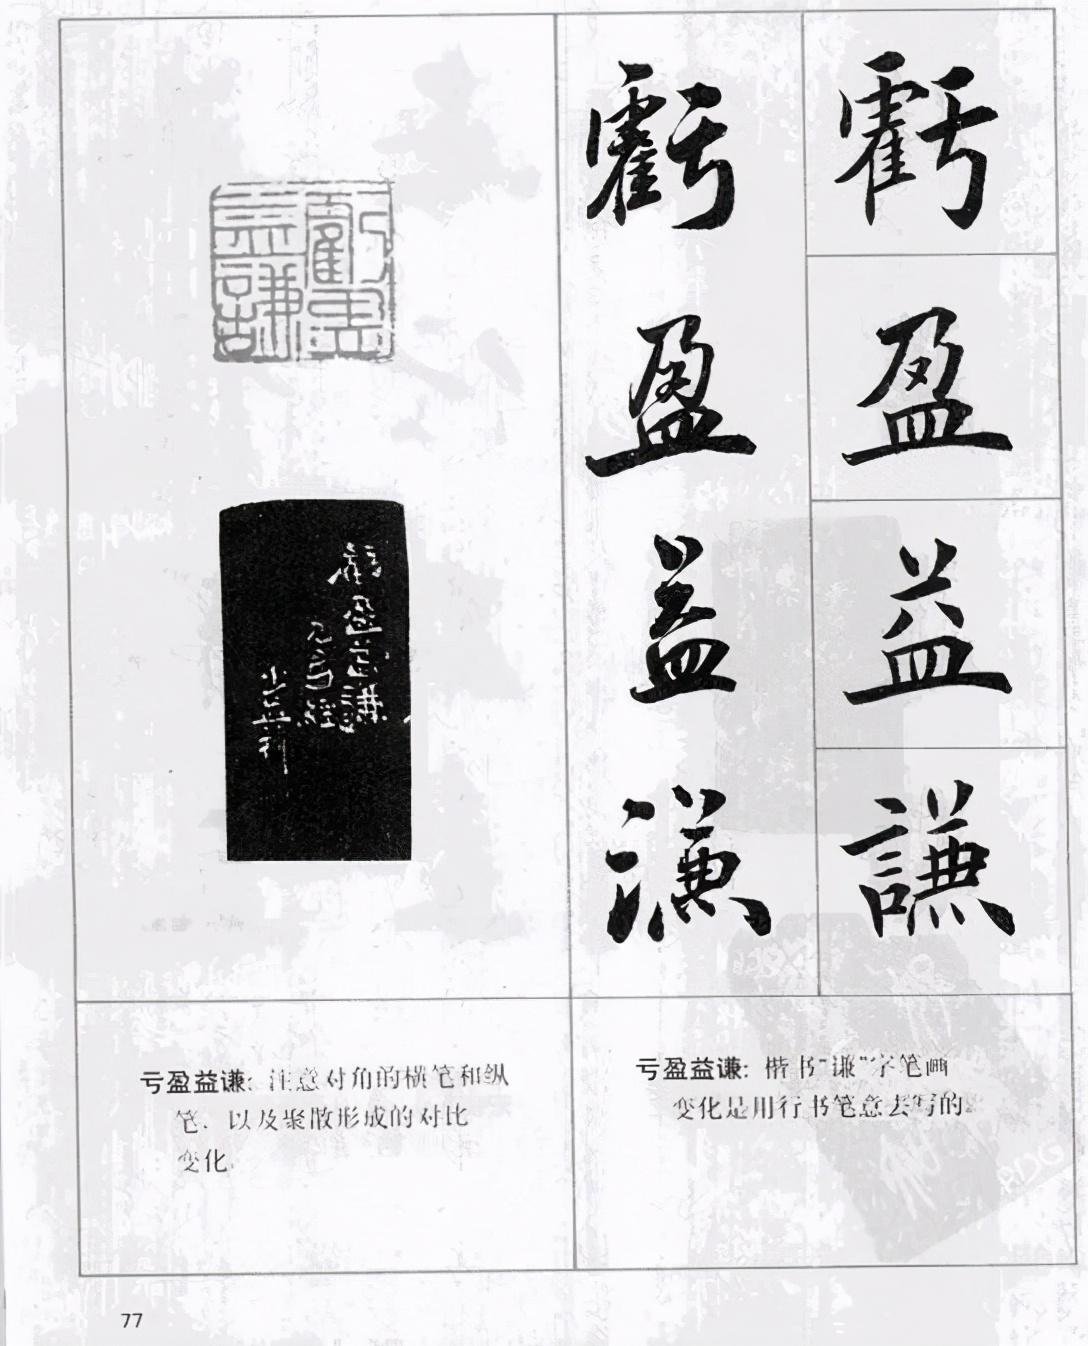 虧
盈
益
謙
虧
盈
益
謙
虧盈
益謙
虧盈益謙
刊
亏盈益谦：楷书“谦”字笔画
变化是用行书笔意去写的。
亏盈益谦：注意对角的横笔和纵
笔，以及聚散形成的对比
变化。
PDG
77